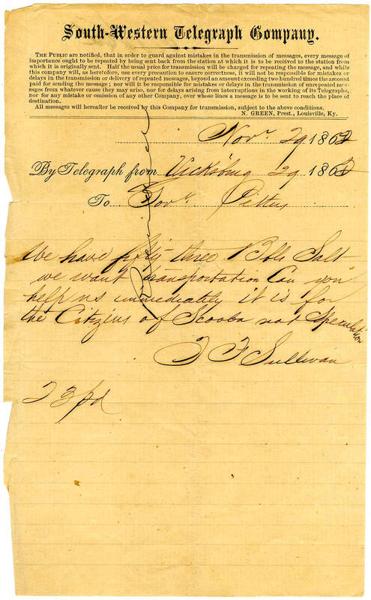 South-Western Telegraph Company.
THE PUBLIC are notified, that in order to guard against mistakes in the transmission of messages, every message of
importance ought to be repeated by being sent back from the station at which it is to be received to the station from
which it is originally sent. Half the usual price for transmission will be charged for repeating the message, and while
this company will, as heretofore, use every precaution to ensure correctness, it will not be responsible for mistakes or
delays in the transmission or delivery of repeated messages, beyond an amount exceeding two hundred times the amount
paid for sending the message; nor will it be responsible for mistakes or delays in the transmission of unrepeated mes-
sages from whatever cause they may arise, nor for delays arising from interruptions in the working of its Telegraphs,
nor for any mistake or omission of any other Company, over whose lines a message is to be sent to reach the place of
destination.
All messages will hereafter be received by this Company for transmission, subject to the above conditions.
N. GREEN, Prest., Louisville, Ky.
Novr 29 1862
By Telegraph from Vicksburg 29 1862
To Govr Pettus
We have fifty three Bbls Salt
we want transportation Can you
help us immediately it is for
the Citizens of Scooba not Speculation
T F Sullivan
23 pd